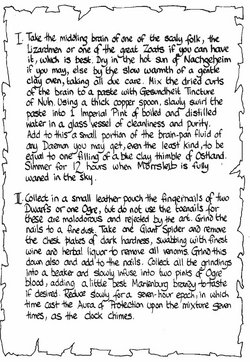 I. Take the middling brain of one of the scaly folk, the
Lizardmen or one of the great Zoats if you can have
it, which is best. Dry in the hot sun of Nachgeheim
if you may, else by the slow warmth of a gentle
clay oven, taking all due care. Mix the dried curts
of the brain to a paste with Gesundheit Tincture
of Nuln. Using a thick copper spoon, slowly swirl the
paste into 1 Imperial Pint of boiled and distilled
water in a glass vessel of cleanliness and purity.
Add to this a small portion of the brain-pan fluid of
any Daemon you may get, even the least kind, to be
equal to one filling of a blue clay thimble of Ostland.
Simmer for 12 hours when Morrslieb is fully
waned in the sky.
I. Collect in a small leather pouch the fingernails of two
Dwarfs or one Ogre, but do not use the toenails for
these are malodorous and rejected by the art. Grind the
nails to a fine dust. Take one Giant Spider and remove
the chest plates of dark hardness, swabbing with finest
wine and herbal liquor to remove all venoms. Grind this
down also and add to the nails. Collect all the grindings
into a beaker and slowly infuse into two pints of Ogre
blood, adding a little best Marienburg brandy to taste
if desired. Reduce slowly for a seven-hour epoch, in which
time cast the Aura of Protection upon the mixture seven
times, as the clock chimes.